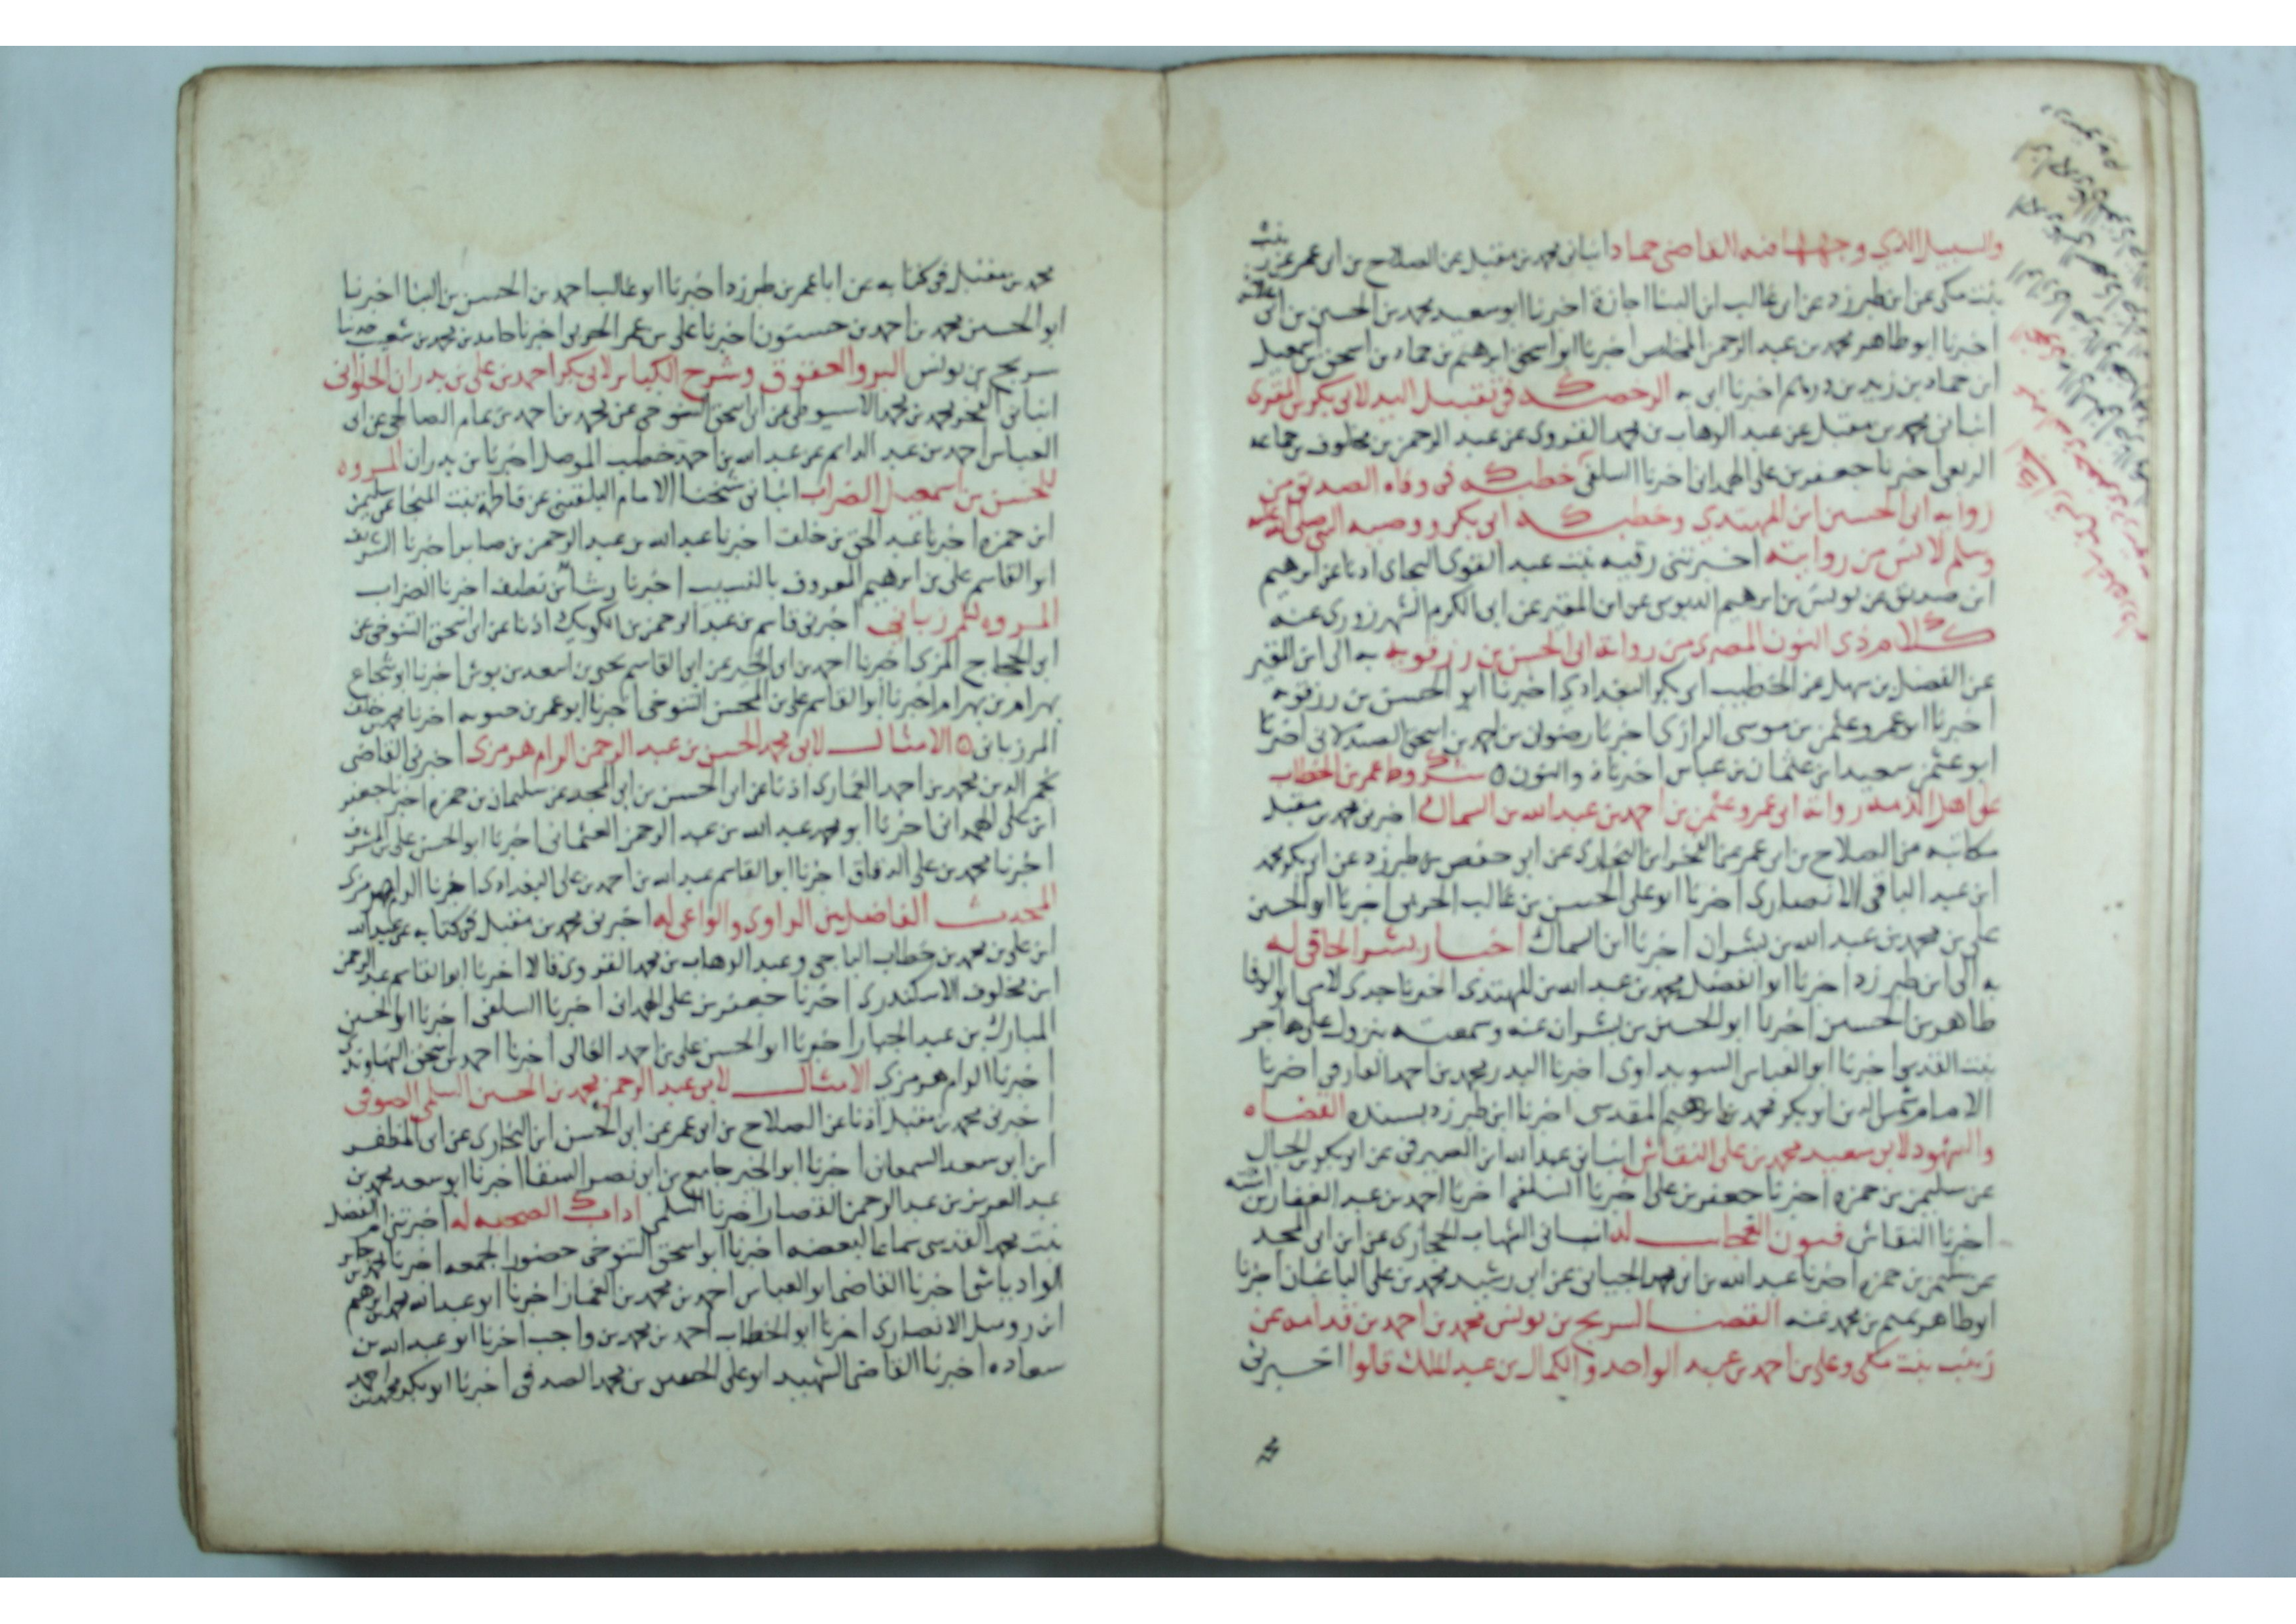 والسبيل الذي وجهها فيه القاضي حماد انباني محمد بن مقبل عن الصلاح بن ابي عمر عن زينب
بنت مكي عن ابن طبرزد عن ابي غالب ابن البنا اجازة اخبرنا ابو سعد محمد بن الحسين بن ابي علانه
اخبرنا ابو طاهر محمد بن عبد الرحمن المخلص اخبرنا ابو اسحق ابرهيم بن حماد بن اسحق بن اسمعيل
ابن حماد بن زيد بن درهم اخبرنا ابي به الرخصة في تقبيل اليد لابي بكر بن المقرى
انباني محمد بن مقبل عن عبد الوهاب بن محمد القروى عن عبد الرحمن بن مخلوف بن جماعه
الربعي اخبرنا جعفر بن علي الهمداني اخبرنا السلفي خطبة في وفاه الصديق من
رواية ابي الحسين ابن المهتدي وخطبة ابي بكر ووصية النبي صلى الله عليه
وسلم لانس من روايته اخبرتني رقيه بنت عبد القوى البجاى اذنا عن ابرهيم
ابن صديق عن يونس بن ابرهيم الدبوسي عن ابن المقير عن ابي الكرم الشهرزورى عنه
كلام ذى النون المصرى من رواية ابي الحسن بن رزقويه به الى ابن المقير
عن الفضل بن سهل عن الخطيب ابي بكر البغدادي اخبرنا ابو الحسن بن رزقويه
اخبرنا ابو عمرو عثمن بن موسى الرازى اخبرنا رضوان بن احمد بن اسحق الصيدلاني اخبرنا
ابو عثمن سعيد ابن عثمان بن عباس اخبرنا ذو النون ه شروط عمر بن الخطاب
على اهل الذمه رواية ابي عمرو عثمن بن احمد بن عبد الله بن السماك اخبرني محمد بن مقبل
مكاتبه عن الصلاح بن ابي عمر عن الفخر ابن البخارى عن ابي حفص بن طبرزد عن ابي بكر محمد
ابن عبد الباقي الانصارى اخبرنا ابو علي الحسن بن غالب الحربي اخبرنا ابو الحسين
علي بن محمد بن عبد الله بن بشران اخبرنا ابن السماك اخبار بشر الحافي له
به الى ابن طبرزد اخبرنا ابو الفضل محمد بن عبد الله بن المهتدى اخبرنا جدى لامي ابو الوفا
طاهر بن الحسين اخبرنا ابو الحسين بن بشران عنه وسمعته بنزول على هاجر
بنت القدسي اخبرنا ابو العباس السويداوى اخبرنا البدر محمد بن احمد الفارقي اخبرنا
الامام شمس الدين ابو بكر محمد بن ابرهيم المقدسي اخبرنا ابن طبرزد بسنده القضاه
والشهود لابي سعيد محمد بن علي النقاش انباني عبد الله ابن الصيرفي عن ابي بكر بن الجبال
عن سليمن بن حمزه اخبرنا جعفر بن علي اخبرنا السلفي اخبرنا احمد بن عبد الغفار بن اشته
اخبرنا النقاش فنون العجايب له انباني الشهاب الحجازى عن ابن ابي المجد
عن سليمن بن حمزه اخبرنا عبد الله بن ابي محمد الجبائي عن ابي رشيد محمد بن علي الباغبان اخبرنا
ابو طاهر تميم بن محمد عنه القضا لسريج بن يونس محمد بن احمد بن قدامه عن
زينب بنت مكي وعلي بن احمد بن عبد الواحد والكمال بن عبد الملك قالوا اخبرني
محمد بن مقبل في كتابه عن ابا عمر بن طبرزد اخبرنا ابو غالب احمد بن الحسن بن البنا اخبرنا
ابو الحسين محمد بن احمد بن حسنون اخبرنا علي بن عمر الحربي اخبرنا حامد بن محمد بن شعيب حدثنا
سريج بن يونس البر والعقوق وشرح الكبائر لابي بكر احمد بن علي بن بدران الحلواني
انباني الفخر محمد بن محمد الاسيوطي عن ابي اسحق التنوخي عن محمد بن احمد بن تمام الصالحي عن ابي
العباس احمد بن عبد الدايم عن عبد الله بن احمد خطيب الموصل اخبرنا بن بدران المروه
للحسن بن اسمعيل الضراب انباني شيخنا الامام البلقيني عن فاطمة بنت المنجا عن سليمن
ابن حمزه اخبرنا عبد الحق بن خلف اخبرنا عبد الله بن عبد الرحمن بن صابر اخبرنا الشريف
ابو القاسم علي بن ابرهيم المعروف بالنسيب اخبرنا رشا بن نظيف اخبرنا الضراب
المروه للمرزباني اخبرني قاسم بن عبد الرحمن بن الكويك اذنا عن ابي اسحق التنوخي عن
ابي الحجاج المزى اخبرنا احمد بن ابي الخير عن ابي القاسم يحيى بن اسعد بن بوش اخبرنا ابو شجاع
بهرام بن بهرام اخبرنا ابو القاسم علي بن المحسن التنوخي اخبرنا ابو عمر بن حيويه اخبرنا محمد بن خلف
المرزباني ه الامثال لابي محمد الحسن بن عبد الرحمن الرامهرمزى اخبرني القاضي
نجم الدين محمد بن احمد الغمارى اذنا عن ابي الحسن بن ابي المجد عن سليمان بن حمزه اخبرنا جعفر
ابن علي الهمداني اخبرنا ابو محمد عبد الله بن عبد الرحمن العثماني اخبرنا ابو الحسن علي بن المشرف
اخبرنا محمد بن علي الدقاق اخبرنا ابو القاسم عبد الله بن احمد بن علي البغدادى اخبرنا الرامهرمزى
المحدث الفاضل بين الراوى والواعي له اخبرني محمد بن مقبل في كتابه عن عبد الله
ابن علي بن محمد بن خطاب الباجي وعبد الوهاب بن محمد القروى قالا اخبرنا ابو القاسم عبد الرحمن
ابن مخلوف الاسكندرى اخبرنا جعفر بن علي الهمداني اخبرنا السلفي اخبرنا ابو الحسين
المبارك بن عبد الجبار اخبرنا ابو الحسن علي بن احمد الفالي اخبرنا احمد بن اسحق النهاوندي
اخبرنا الرامهرمزي الامثال لابي عبد الرحمن محمد بن الحسين السلمي الصوفي
اخبرني محمد بن مقبل اذنا عن الصلاح بن ابي عمر عن ابي الحسن ابن البخارى عن ابي المظفر
ابن ابي سعد السمعاني اخبرنا ابو الخير جامع بن ابي نصر السقا اخبرنا ابو سعد محمد بن
عبد العزيز بن عبد الرحمن القصار اخبرنا السلمي اداب الصحبه له اخبرتني ام الفضل
بنت محمد القدسي سماعا لبعضه اخبرنا ابو اسحق التنوخي حضورا لجميعه اخبرنا محمد بن جابر
الوادياشي اخبرنا القاضي ابو العباس احمد بن محمد بن الغماز اخبرنا ابو عبد الله محمد بن ابرهيم
ابن روبيل الانصارى اخبرنا ابو الخطاب احمد بن محمد بن واجب اخبرنا ابو عبد الله بن
سعاده اخبرنا القاضي الشهيد ابو علي الحسين بن محمد الصدفي اخبرنا ابو بكر محمد بن احمد